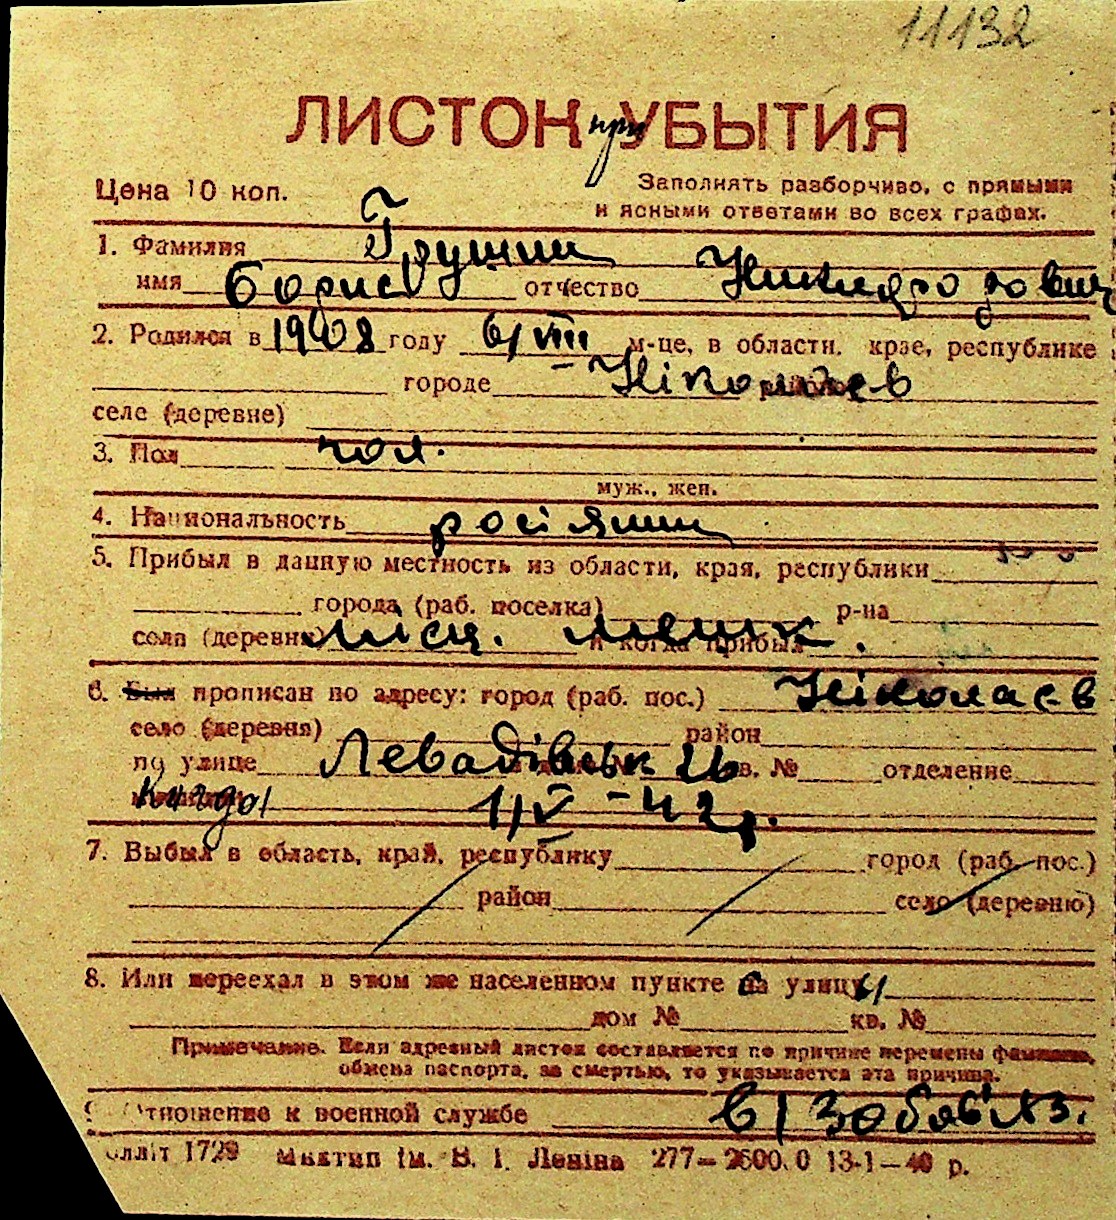 11132
ЛИСТОК при УБЫТИЯ
Цена 10 коп.
Заполнять разборчиво, с прямыми
и ясными ответами во всех графах.
1. Фамилия Грушин
имя Борис отчество Никандрович
2. Родился в 1908 году 6/VIII м-це, в области, крае, республике
городе Ніколаєв
селе (деревне)
3. Пол чол.
муж., жен.
4. Национальность росіянин
5. Прибыл в данную местность из области, края, республики
города (раб. поселка) р-на
села (деревни) місц. и когда прибыл
6. Был прописан по адресу: город (раб. пос.) Ніколаєв
село (деревня) район
по улице Левадівськ 26 кв. № отделение
1/V-42 р.
7. Выбыл в область, край, республику город (раб. пос.)
район село (деревню)
8. Или переехал в этом же населенном пункте на улицу
дом № кв. №
Примечание. Если адресный листок составляется по причине перемены фамилии,
обмена паспорта, за смертью, то указывается эта причина.
Отношение к военной службе в/зобов'яз.
оллiт 1729 Миктип iм. В. I. Ленiна 277—2600.0 13-1—40 р.